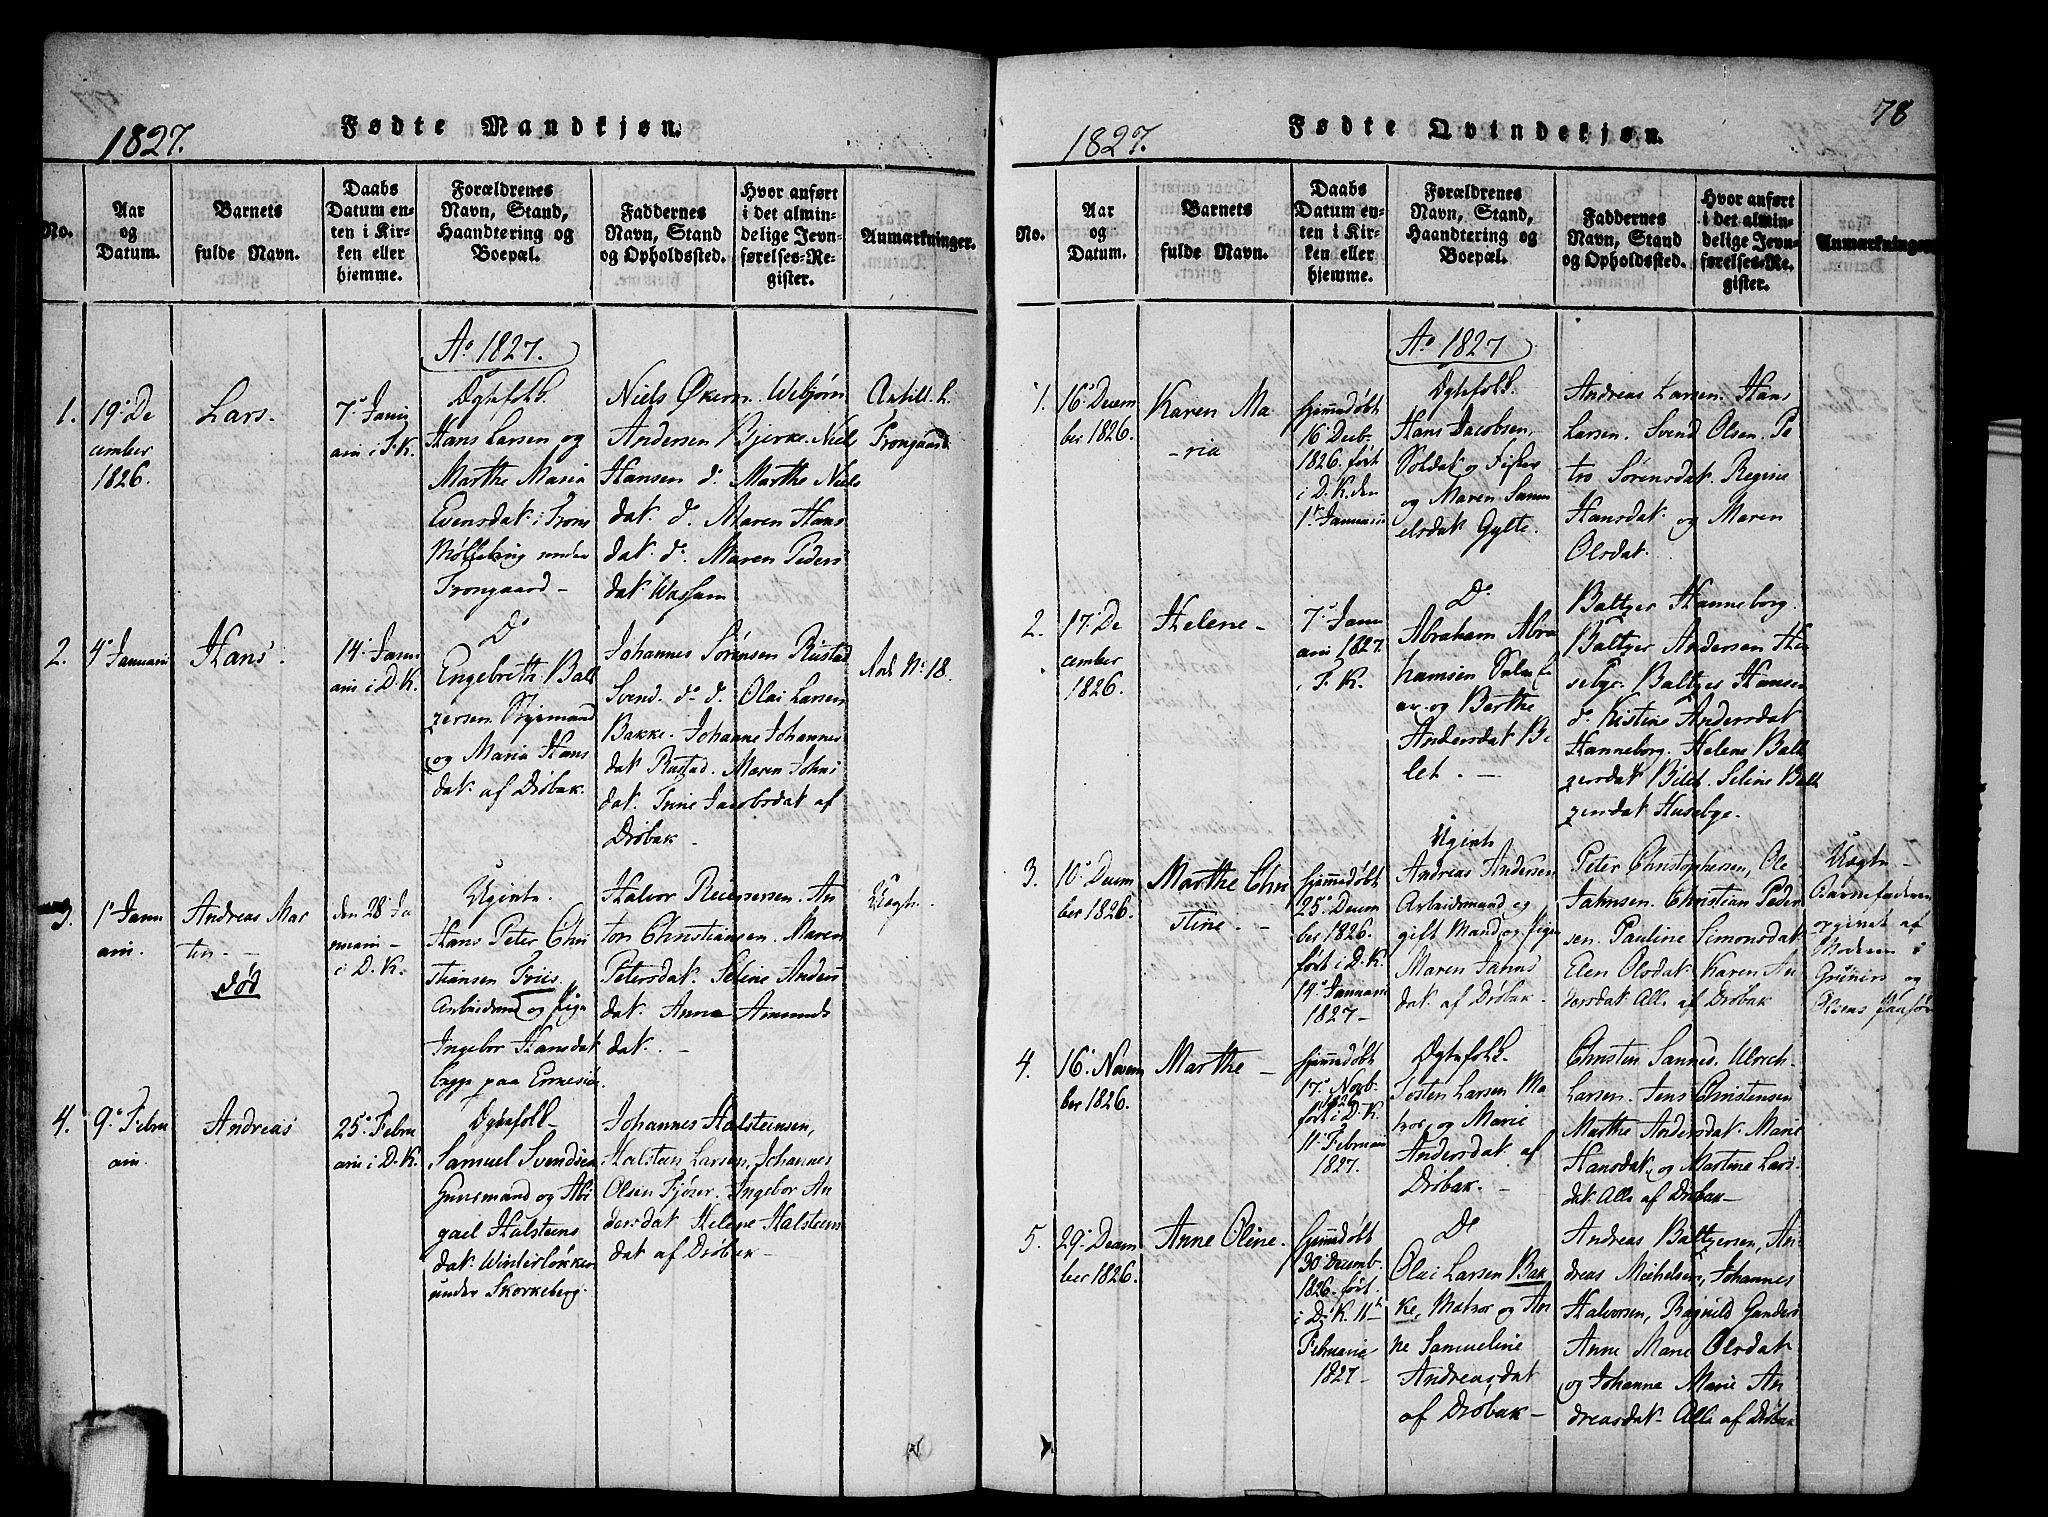 1827.
Fødte Mandkjøn.
No.
Aar
og
Datum.
Barnets
fulde Navn.
Daabs
Datum en-
ten i Kir-
ken eller
hjemme.
Forældrenes
Navn, Stand,
Haandtering og
Boepæl.
Faddernes
Navn, Stand
og Opholdssted.
Hvor anført
i det almin-
delige Jevn-
førelses-Re-
gister.
Anmærkninger.
Ao 1827.
1.
19. De
cember
1826.
Lars.
7. Janu
arii i F. K.
Ægtefolk
Hans Larsen og
Marthe Maria
Evensdat. i Frons
under
Frongaard -
Niels Økern. Webjørn
Andersen Bjerke. Niels
Hansen do. Marthe Niels
dat. do. Maren Hans
dat. do. Maren Peders
dat. Wassum
Frongaard
2.
4. Januarii
Hans.
14. Janu
arii i D. K.
Do
Engebreth Balt
zersen Styrmand
og Maria Hans
dat. af Drøbak.
Johannes Sørensen Rustad
Svend do do. Olai Larsen
Bakke. Johanne Johannes
dat. Rustad. Maren Johns
dat. Trine Jacobsdat af
Drøbak -
No 18.
3.
1. Janu
arii.
Andreas Mar
tin -
død
den 28 Ja
nuarii -
i D. K.
Ugivte.
Hans Peter Chri
stiansen Friis.
og Pige
Ingebor Hansdat
begge paa
Halvor Reiersen. An
ton Christiansen. Maren
Petersdat. Seline Anders
dat. Anne Amunds
dat. -
Uægte.
4.
9. Febru
arii.
Andreas
25. Febru
arii i D. K.
Ægtefolk
Samuel Svendsen
Huusmand og Abi
gael Halsteens
dat. Winterløkken
under Skorkeberg.
Johannes Halsteensen,
Halsteen Larsen, Johannes
Olsen Fjøser. Ingebor An
dersdat. Helene Halsteens
dat af Drøbak -
78
1827.
Fødte Qvindekjøn.
No.
Aar
og
Datum.
Barnets
fulde Navn.
Daabs
Datum en-
ten i Kir-
ken eller
hjemme.
Forældrenes
Navn, Stand,
Haandtering og
Boepæl.
Faddernes
Navn, Stand
og Opholdssted.
Hvor anført
i det almin-
delige Jevn-
førelses-Re-
gister.
Anmærkninger.
Ao 1827
1.
16. Decem
ber 1826.
Karen Ma
-ria
hjemmedøbt
16 Decb.
1826. ført
i D. K. den
1. Januarii
Ægtefolk.
Hans Jacobsen,
Soldat og Fisker
og Maren Samu
elsdat Gylte.
Andreas Larsen. Hans
Larsen. Svend Olsen. Pe
tro Sørensdat. Regine
Hansdat. og Maren
Olsdat.
2.
17. De
cember
1826.
Helene -
7. Janu
arii 1827.
i F. K.
Do
Abraham Abra
hamsen
og Berthe
Andersdat Bi
let. -
Baltzer Hanneborg.
Baltzer Andersen Hu
sebye. Baltzer Hansen
do. Kistine Andersdat
Hanneborg. Helene Balt
zersdat Bilet. Seline Balt
zersdat Husebye.
3.
10. Decem
ber 1826.
Marthe Chri
stine. -
hjemmedøbt
25. Decem
ber 1826.
ført i D. K.
14. Januarii
1827 -
Ugivte
Andreas Andersen
Arbeidsmand og
gift Mand, og Pigen
Maren Janns
dat. af Drøbak -
Peter Christophersen, Ole
Jahnsen. Christian Peder
sen. Pauline Simonsdat
Elen Olsdat. Karen An
dersdat. Alle af Drøbak
Uægte -
Barnefaderen
opgivet af
Moderen i
og
4.
16. Novem
ber 1826.
Marthe -
hjemmedøbt
17. Novb.
1826
ført i D. K.
11. Februarii
1827.
Ægtefolk.
Tosten Larsen Ma
tros, og Marie
Andersdat. af
Drøbak. -
Christen Sannes. Ulrich
Larsen. Jens Christensen
Marthe Andersdat. Marie
Hansdat. og Martine Lars
dat. Alle af Drøbak -
5.
29. Decem
ber 1826.
Anne Oline.
hjemmedøbt
30. Decemb.
1826. ført
i D. K. 11te
Februarie
1827 -
Do
Olai Larsen Bak
ke, Matros og An
ne Samueline
Andreasdat
af Drøbak -
Andreas Baltzersen, An
dreas Michelsen, Johannes
Halvorsen, Ragnild Gunders
Anne Marie Olsdat.
og Johanne Marie An
dreasdat. Alle af Drøbak